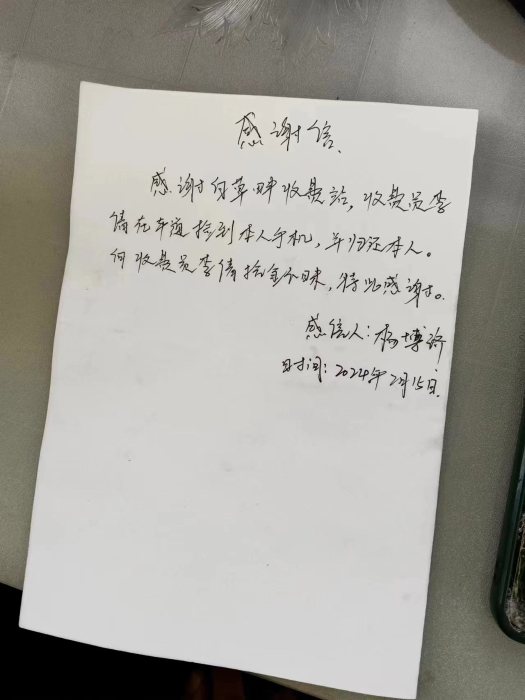 感谢信.
感谢白草畔收费站，收费员李
倩在车道捡到本人手机，并归还本人。
向收费员李倩拾金不昧，特此感谢。
感信人：杨博
时间：2024年2月15日.